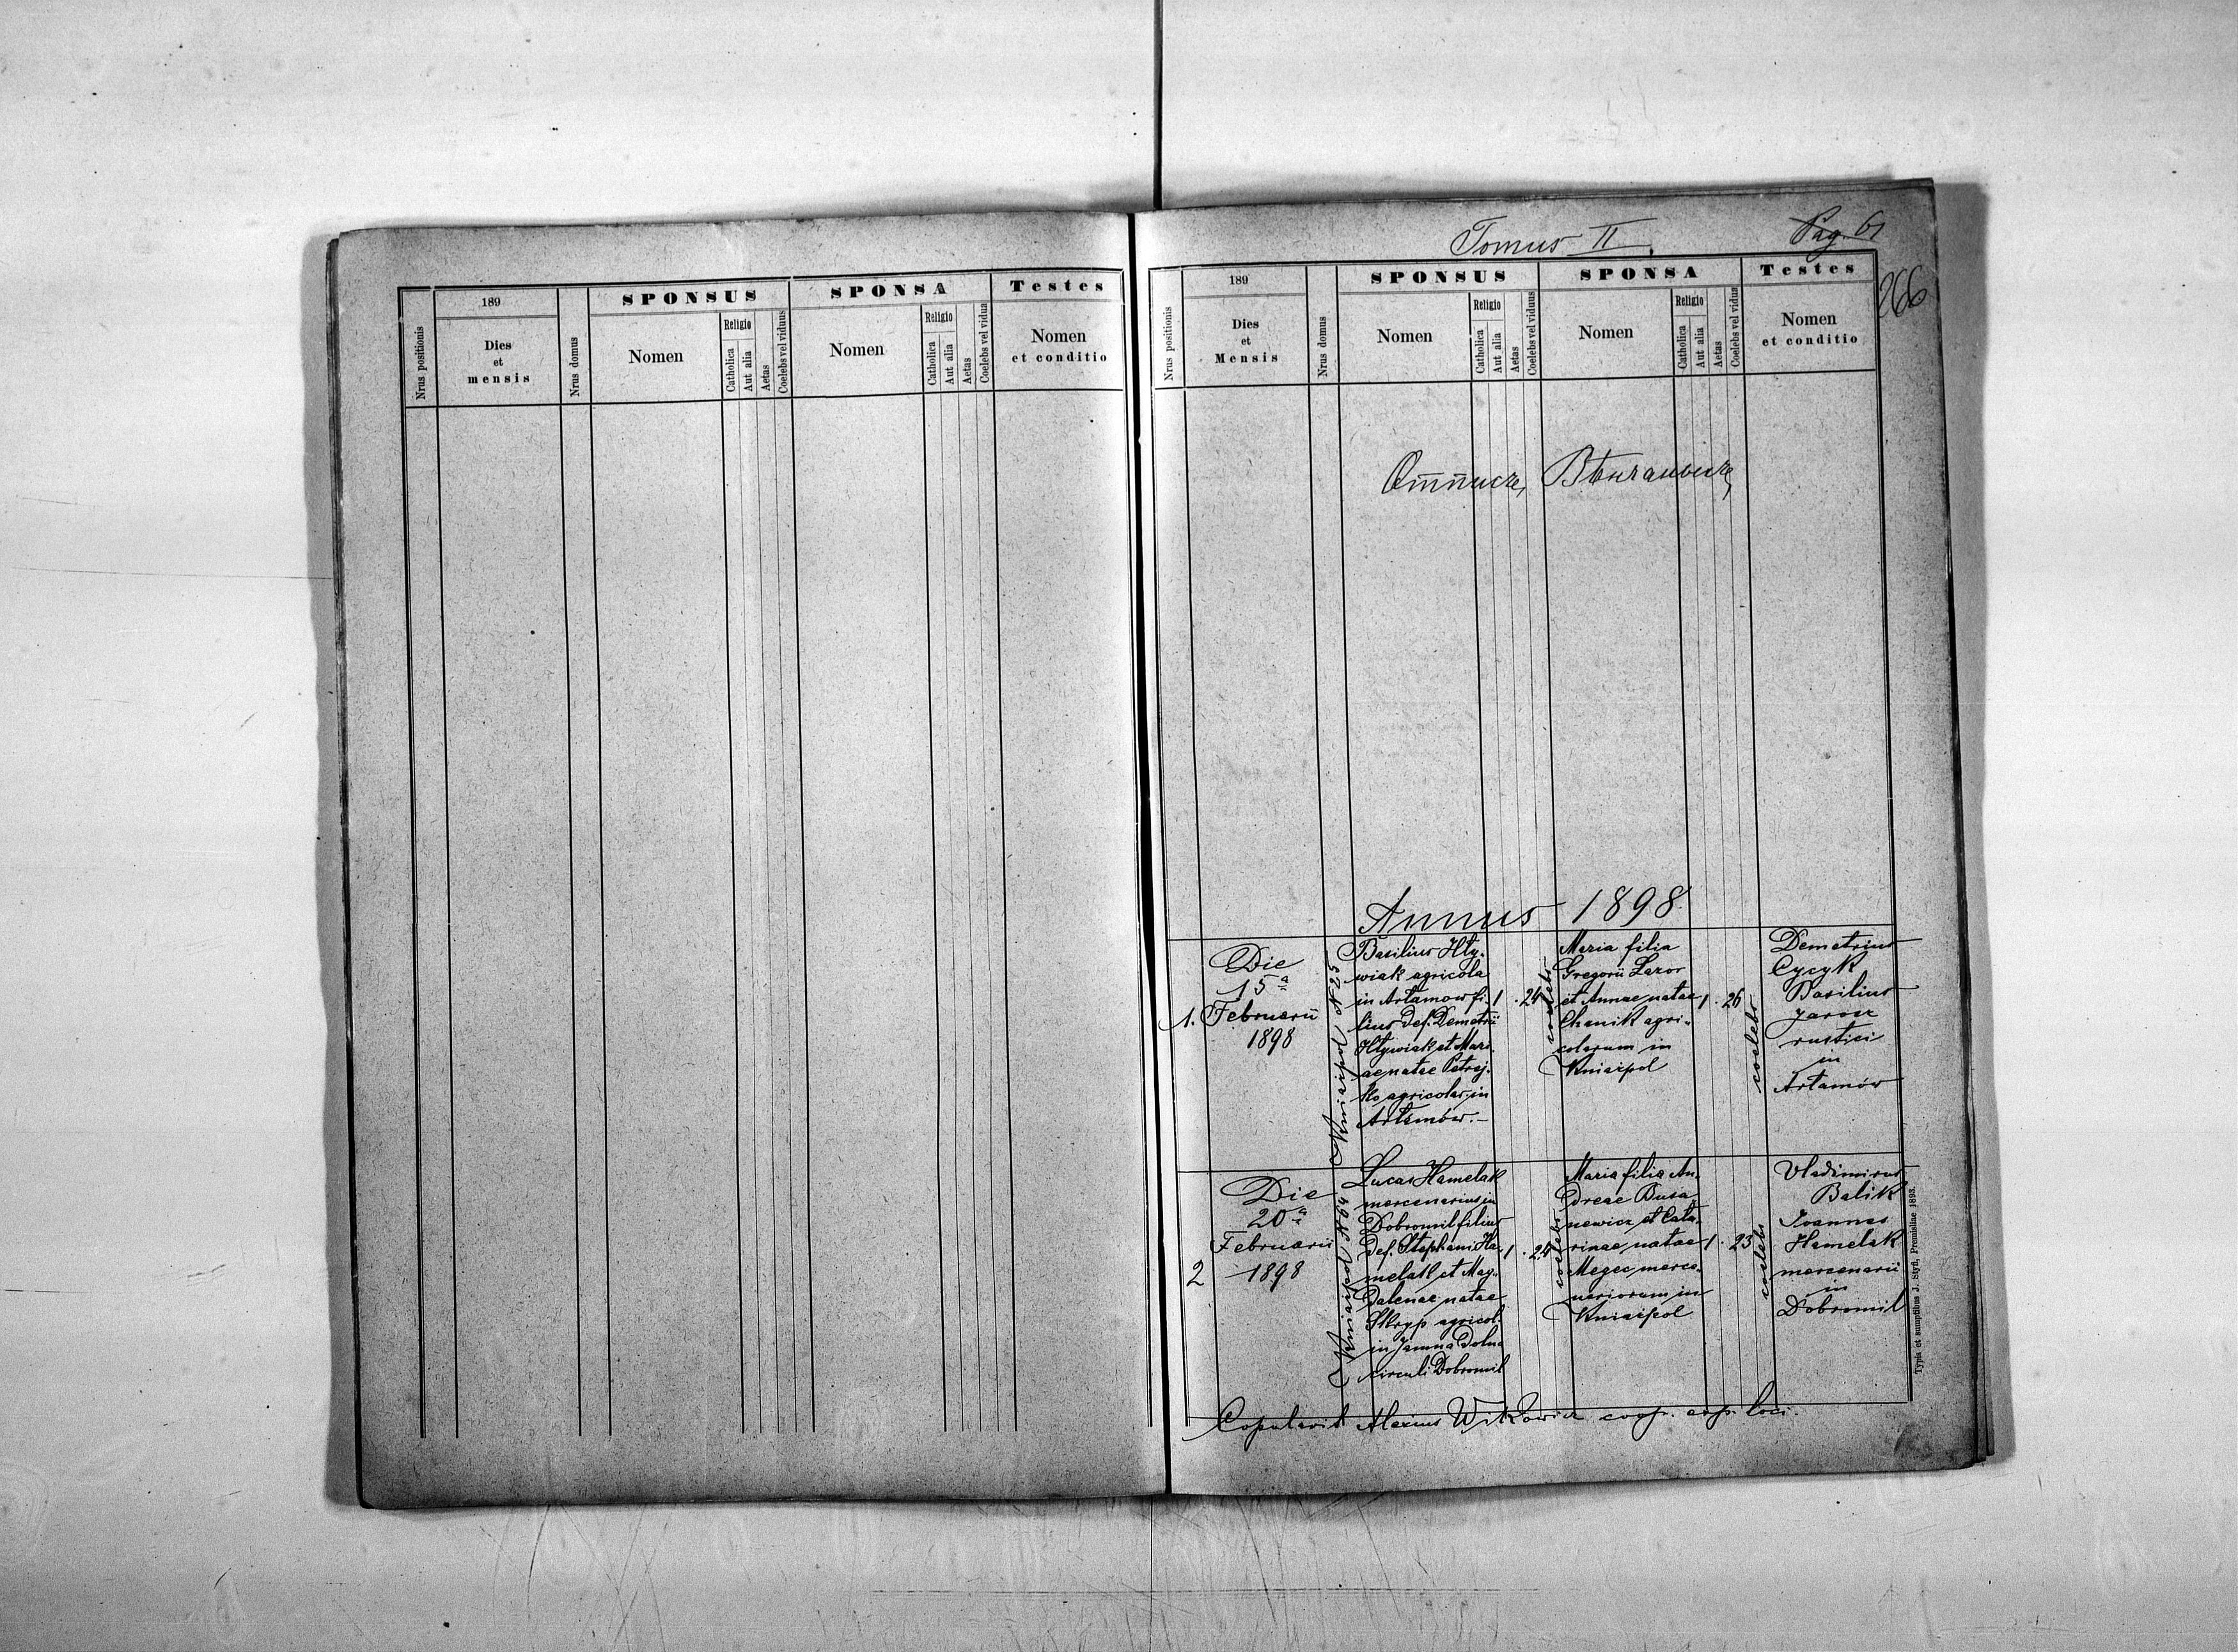 189
Dies
et
mensis
Nrus positionis
Nrus domus
SPONSUS
Nomen
Religio
Catholica
Aut alia
Aetas
Coelebs vel viduus
SPONSA
Nomen
Religio
Catholica
Aut alia
Aetas
Coelebs vel vidua
Testes
Nomen
et conditio
Tomus II
Pag. 61
266
Nrus positionis
189
Dies
et
Mensis
Nrus domus
SPONSUS
Nomen
Religio
Catholica
Aut alia
Aetas
Coelebs vel viduus
SPONSA
Nomen
Religio
Catholica
Aut alia
Aetas
Coelebs vel vidua
Testes
Nomen
et conditio
Annus 1898.
1.
Die
15 a
Februarii
1898
Kniażpol N 25
Basilius Hły-
wiak agricola
in Artamow fi-
lius def. Demetrii
Hływiak et Mari-
ae natae Petrej-
ko agricolar. in
Artamów.-
1 . 24
coelebs
Maria filia
Gregorii Lazor
et Annae natae
Chanik agri-
colarum in
Kniażpol
1 . 26
coelebs
Demetrius
Cycyk
Basilius
Jarosz
rustici
in
Artamów
2
Die
20 a
Februarii
1898
Kniażpol N 64
Lucas Hamelak
mercenarius in
Dobromil filius
def. Stephani Ha-
melak et Mag-
dalenae natae
Skryp agricol.
in Jamna Dolna
circuli Dobromil
1 . 24
coelebs
Maria filia An-
dreae Busa
newicz et Cata-
rinae natae
Megec merce-
nariorum in
Kniażpol
1 . 23
coelebs
Vladimirus
Balik
Joannes
Hamelak
mercenarii
in
Dobromil
Copulavit Alexius loci.
Typis et sumptibus J. Styfi, Premisliae 1893.